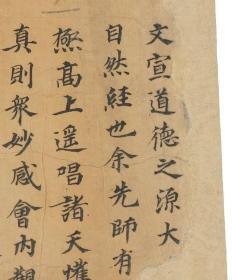 文宣道德之源大
自然経也余先師有
極髙上遥唱諸天懽
真則衆妙感會内觀